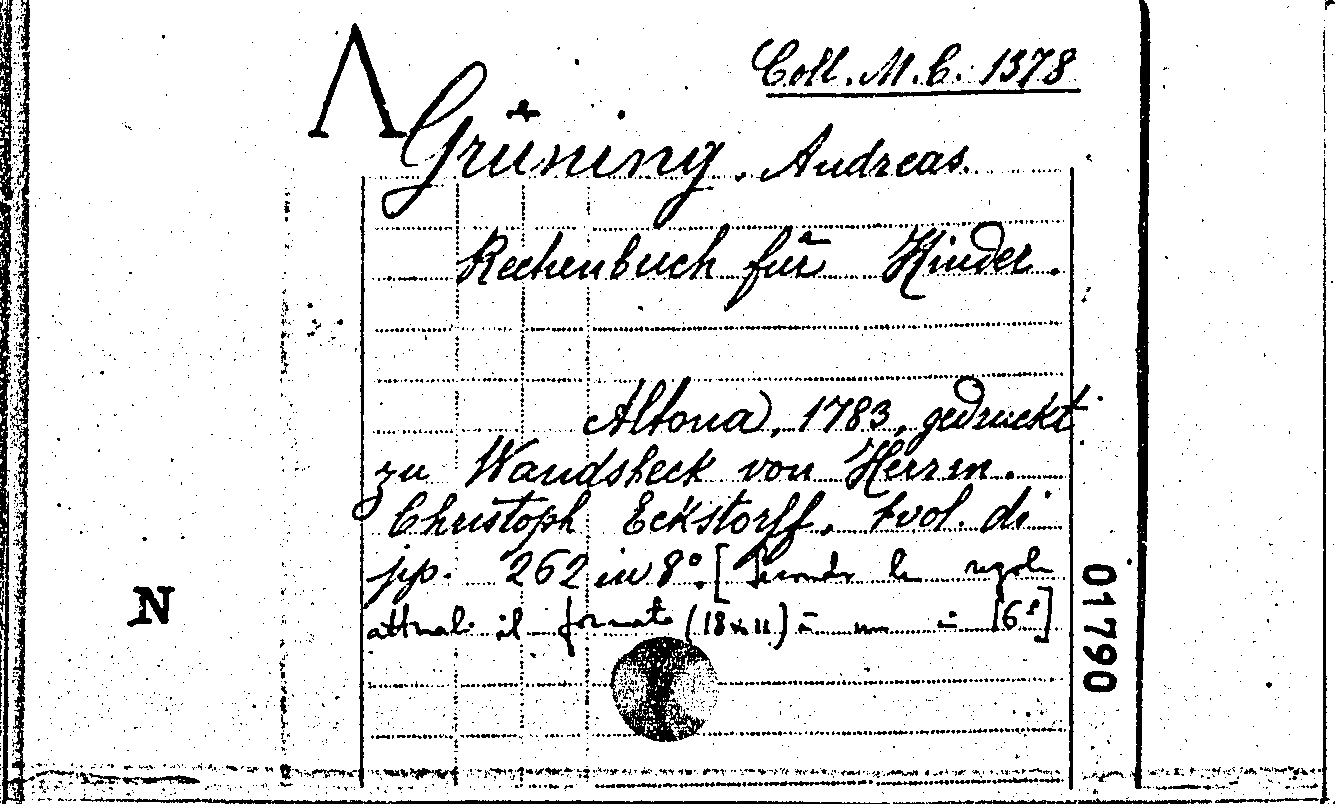 Coll. M. C. 1378
Grüning. Andreas.
Rechenbuch für Kinder.
Altona, 1783, gedruckt
zu Wandsbeck von Herrm.
Christoph Eckstorff, 1 vol. di
pp. 262 in 8°. [Secondo le regole
attuali il formato (18x11) è un in 16°]
N
01790